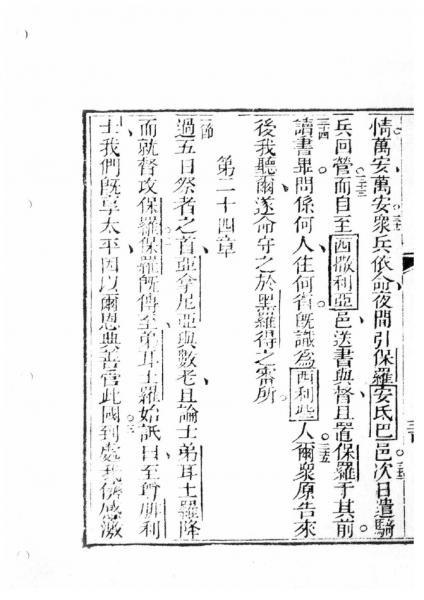 情萬安萬安衆兵依命夜間引保羅安氐巴邑次日遣騎
兵回營而自至西撒利亞邑送書與督且置保羅于其前
三十四讀書畢問係何人住何省旣識爲西利些人三五爾衆原告來
後我聽爾遂命守之於黑羅得之審所
第二十四章
一節過五日祭者之首亞拿尼亞與數老且論士弟耳土羅降
而就督攻保羅二保羅旣傳至弟耳土羅始訴曰至尊腓利
士我們旣享太平因以爾恩典善官此國三到處我儕感激